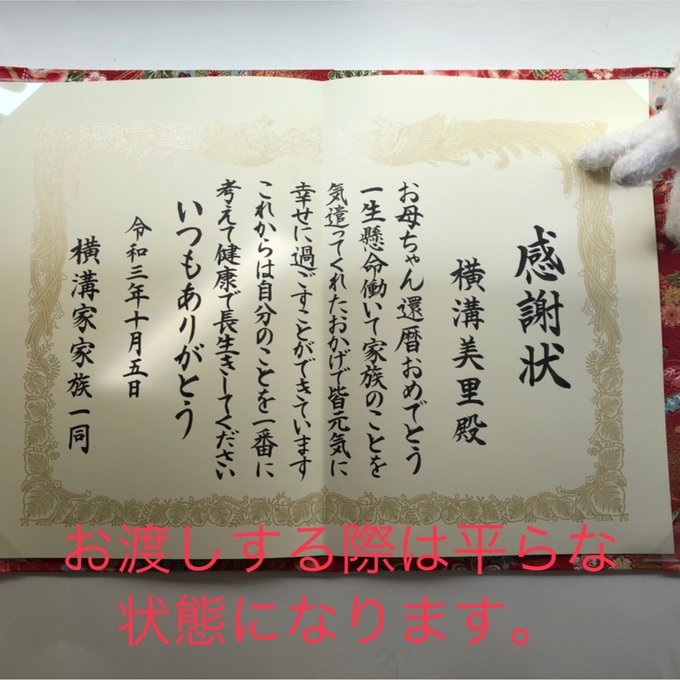 感謝状
横溝美里殿
お母ちゃん還暦おめでとう
一生懸命働いて家族のことを
気遣ってくれたおかげで皆元気に
幸せに過ごすことができています
これからは自分のことを一番に
考えて健康で長生きしてください
いつもありがとう
令和三年十月五日
横溝家家族一同
お渡しする際は平らな
状態になります。